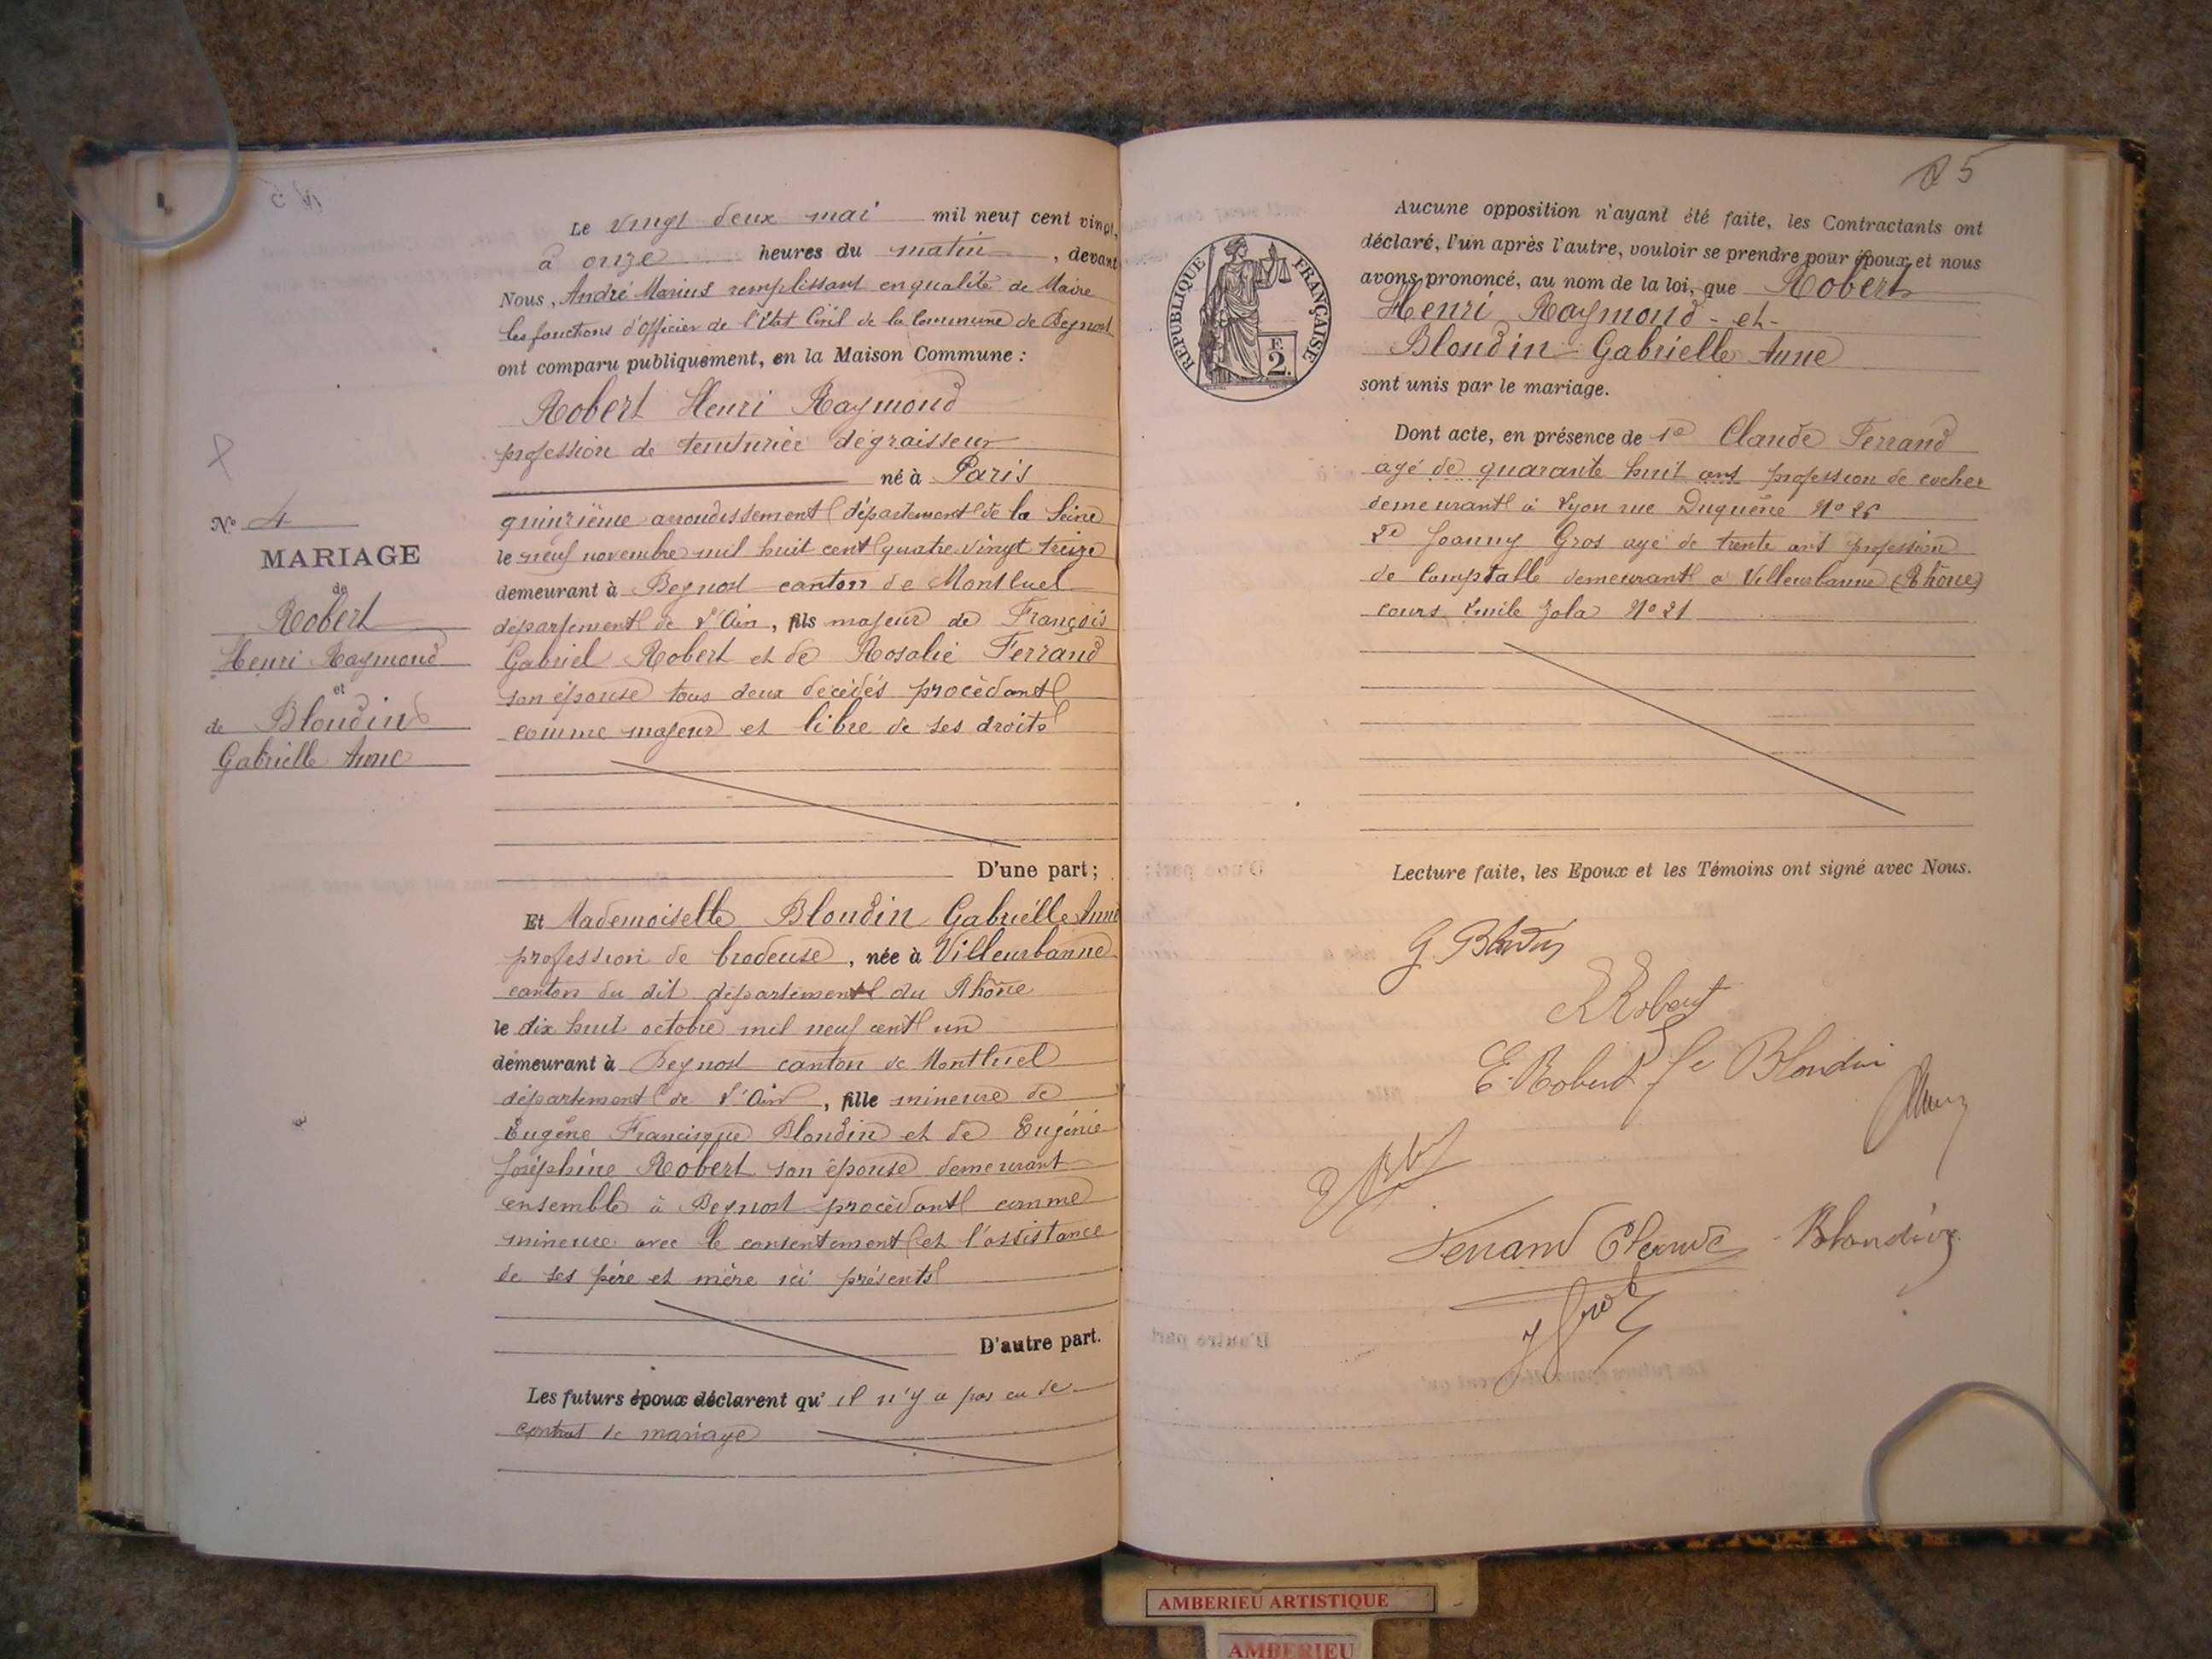 Le vingt deux mai mil neuf cent vingt,
à onze heures du matin, devant
Nous, André Marius remplissant en qualité de Maire
les fonctions d'Officier de l'Etat Civil de la Commune de Beynost
ont comparu publiquement, en la Maison Commune :
Robert Henri Raymond
profession de teinturier dégraisseur
né à Paris
quinzième arrondissement département de la Seine
le neuf novembre mil huit cent quatre vingt treize
demeurant à Beynost canton de Montluel
département de l'Ain, fils majeur de François
Gabriel Robert et de Rosalie Ferrand
son épouse tous deux décédés procédant
comme majeur et libre de ses droits
D'une part ;
Et Mademoiselle Blondin Gabrielle Anne
profession de brodeuse, née à Villeurbanne
canton du dit département du Rhône
le dix huit octobre mil neuf cent un
demeurant à Beynost canton de Montluel
département de l'Ain, fille mineure de
Eugène Francisque Blondin et de Eugénie
Joséphine Robert son épouse demeurant
ensemble à Beynost procédant comme
mineure avec le consentement et l'assistance
de ses père et mère ici présents
D'autre part.
Les futurs époux déclarent qu' il n'y a pas eu de
contrat de mariage
N° 4
MARIAGE
de
Robert
Henri Raymond
et
de Blondin
Gabrielle Anne
25
RÉPUBLIQUE FRANÇAISE
F.
2.
Aucune opposition n'ayant été faite, les Contractants ont
déclaré, l'un après l'autre, vouloir se prendre pour époux et nous
avons prononcé, au nom de la loi, que Robert
Henri Raymond - et -
Blondin Gabrielle Anne
sont unis par le mariage.
Dont acte, en présence de 1° Claude Ferrand
agé de quarante huit ans profession de cocher
demeurant à Lyon rue Duquêne N° 26
2° Joanny Gros agé de trente ans profession
de Comptable demeurant à Villeurbanne (Rhône)
cours Emile Zola N° 21
Lecture faite, les Epoux et les Témoins ont signé avec Nous.
G. Blondin
R Robert
E. Robert fe Blondin
Ferrand Claude Blondin
J Gros
AMBERIEU ARTISTIQUE
AMBERIEU